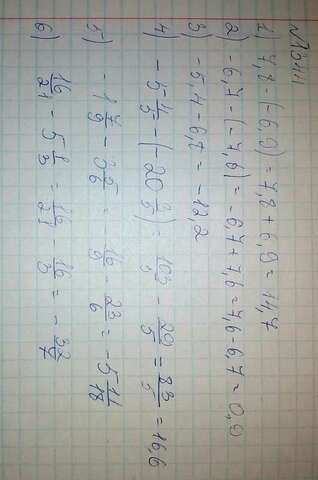 №1311
1) 7,8-(-6,9)=7,8+6,9=14,7
2) -6,7-(-7,6)=-6,7+7,6=7,6-6,7=0,9
3) -5,4-6,8=-12,2
4) -5 4/5-(-20 3/5)=103/5-29/5=83/5=16,6
5) -1 7/9-3 5/6=-16/9-23/6=-5 11/18
6) 16/21-5 1/3=16/21-16/3=-32/7